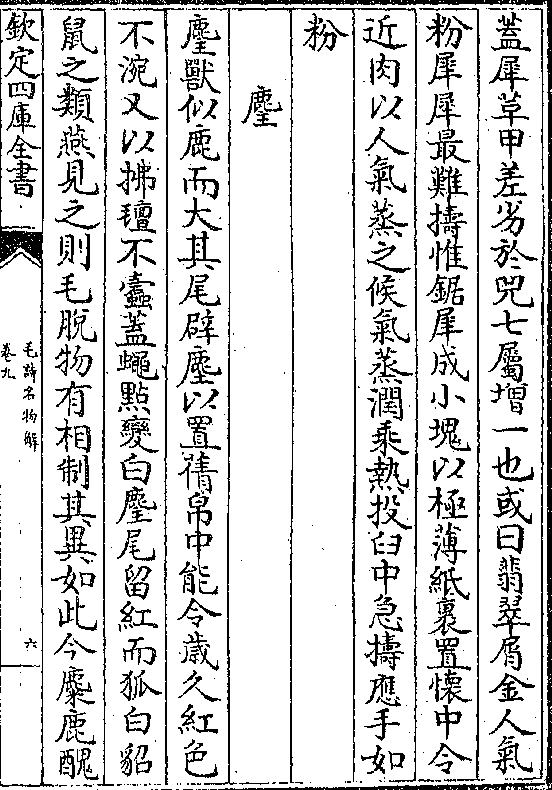 蓋犀草甲差劣於兕七屬增一也或曰翡翠屑金人氣
粉犀犀最難擣惟鋸犀成小塊以極薄紙裹置懷中令
近肉以人氣蒸之候氣蒸潤乘熱投臼中急擣應手如
粉
麈
麈獸似鹿而大其尾辟塵以置蒨帛中能令歲久紅色
不涴又以拂氊不蠧蓋蠅點變白麈尾留紅而狐白貂
鼠之類燕見之則毛脫物有相制其異如此今麋鹿醜
欽定四庫全書
毛詩名物解
卷九
六